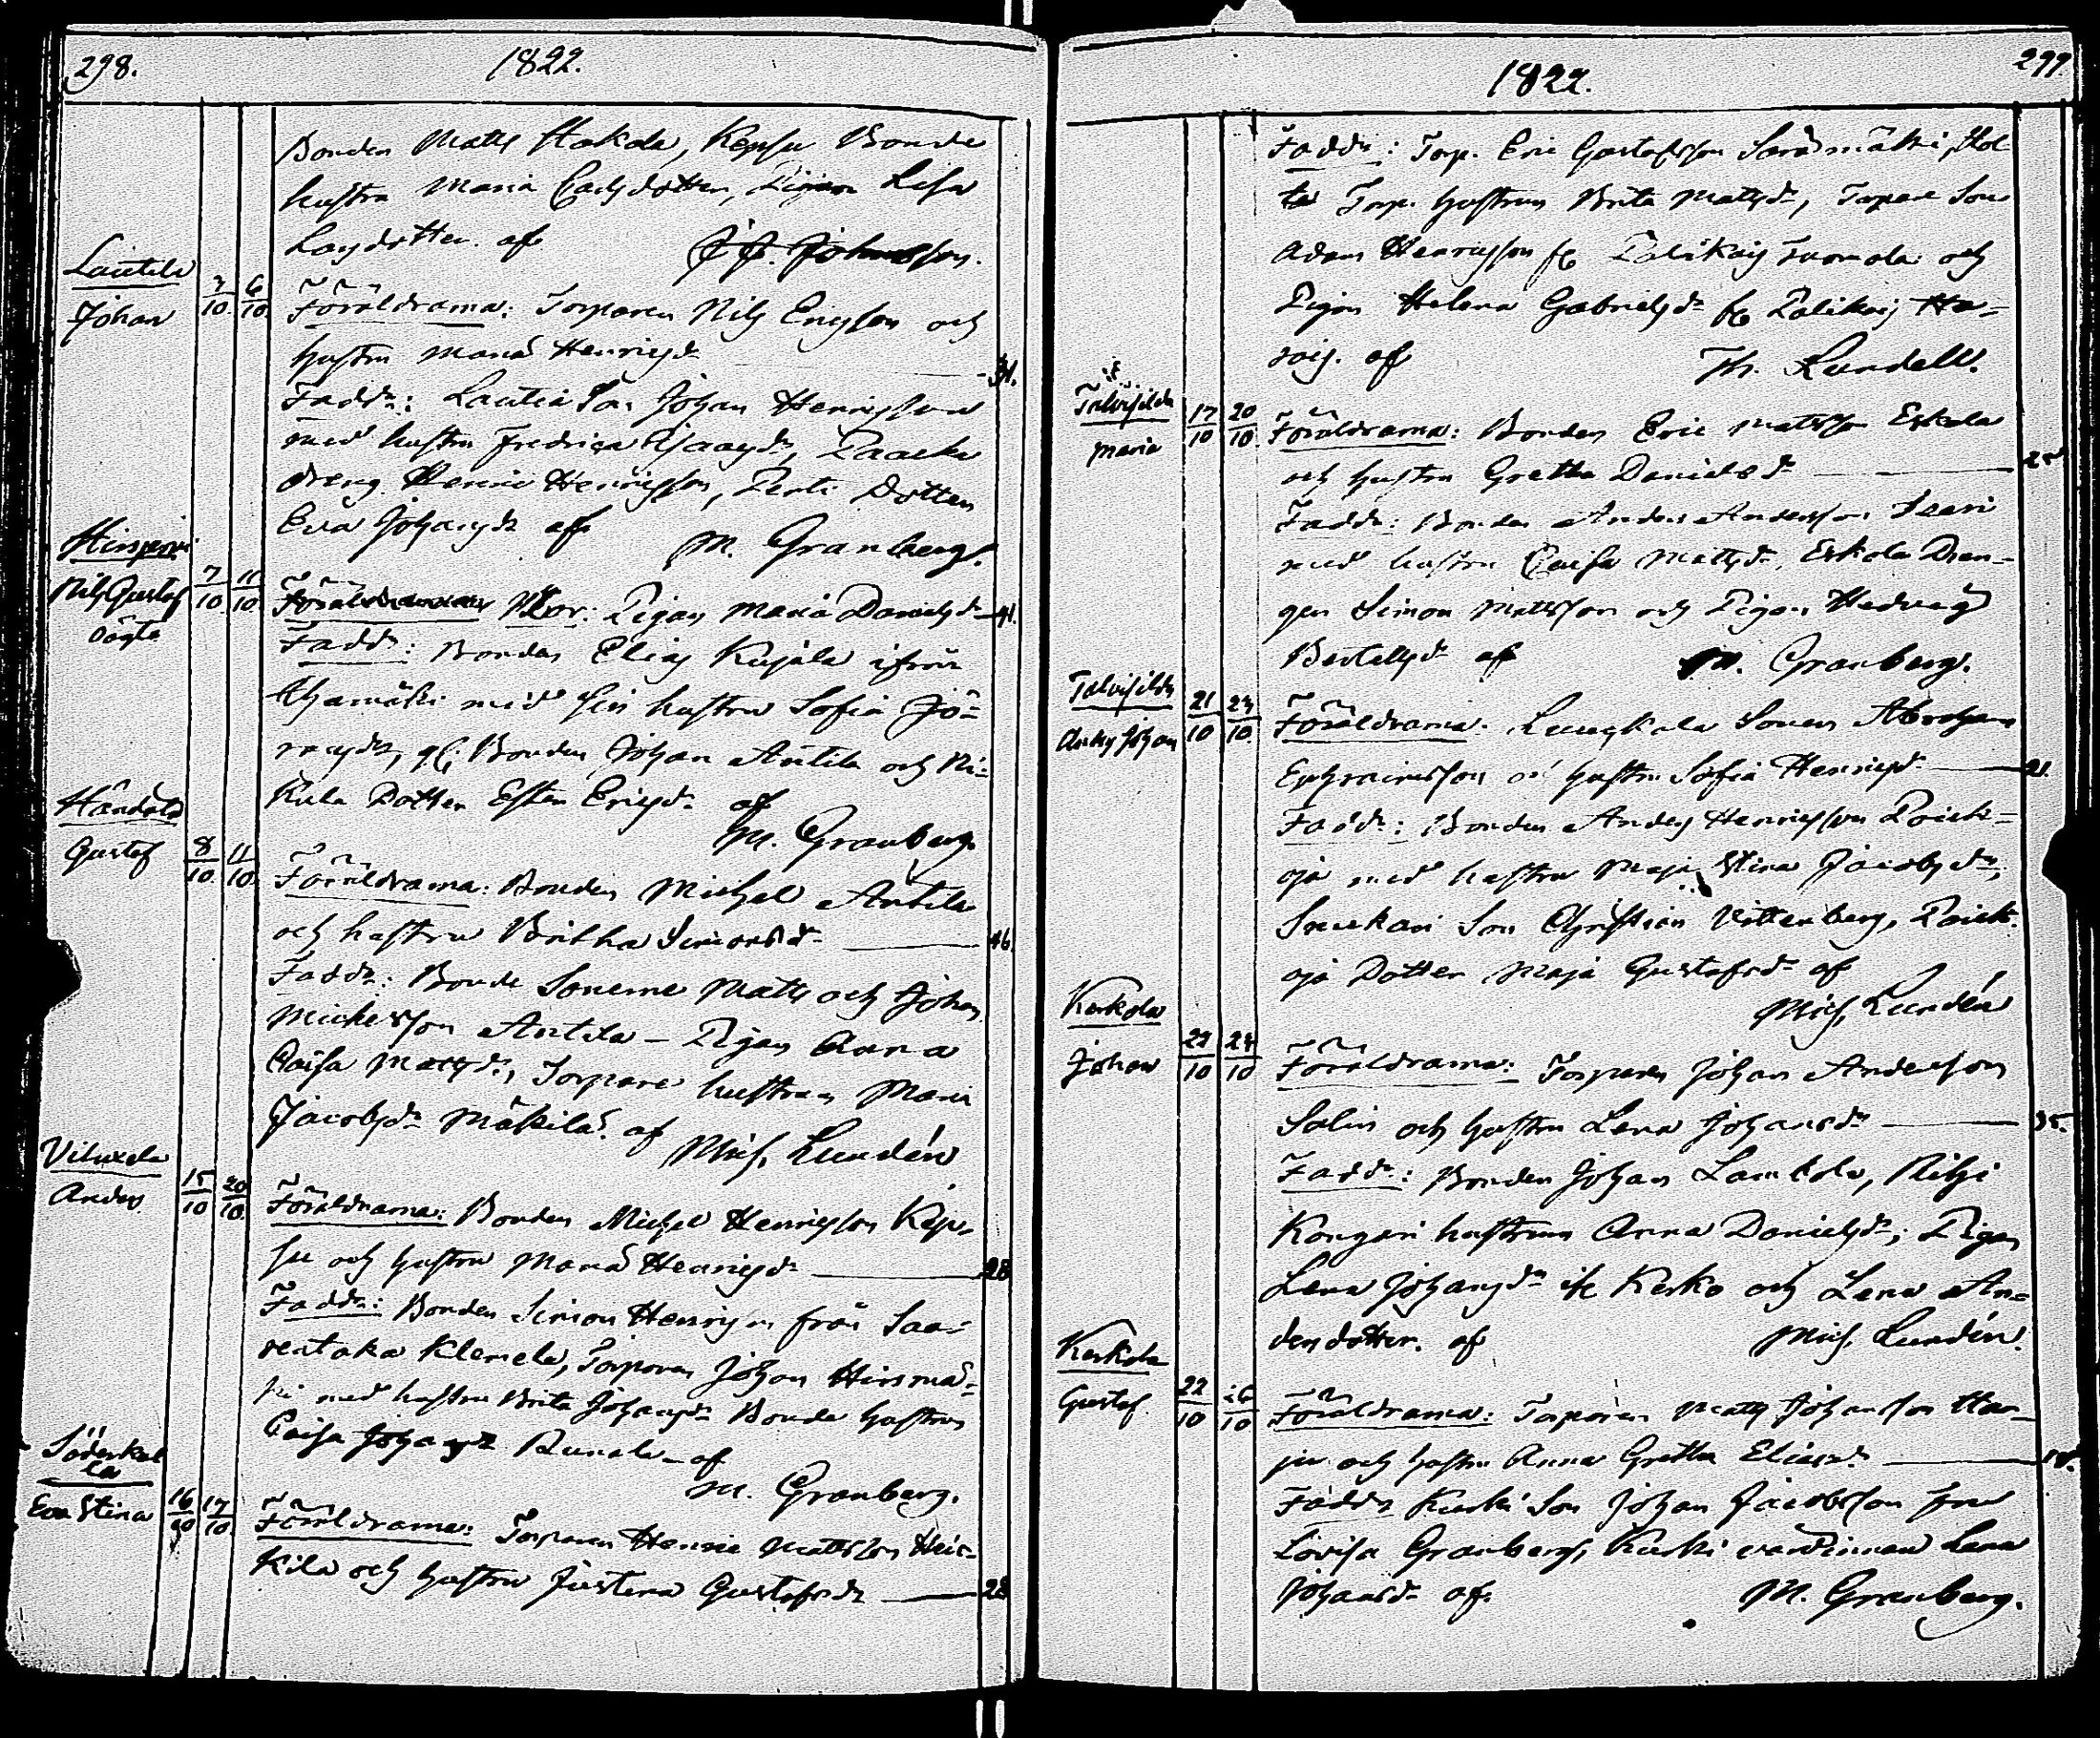 298.
1822.
Bonden Matts Hakola, Kepsu Bonde
hustru Maria Carlsdotter, Pigan Lisa
Larsdotter. af J. J. Johnsson.
Lautela
Johan
2/10. 6/10.
Föräldrarna: Torparen Nils Ericsson och
hustru Maria Henricsdr 31.
Faddr: Lautia Son Johan Henricsson
med hustru Fredrica Isaacsdr, Paacka
dreng Henric Henricsson, Perti Dotter
Eva Johansdr af M. Granberg.
Hirsjervi
Nils Gustaf
oägta
7/10. 11/10.
Mor: Pigan Maria Danielsdr 41.
Faddr: Bonden Elias Kujala ifrån
med sin hustru Sofia Jö-
ransdr, Bonden Johan Antila och Ni-
kula Dotter Ester Ericsdr af
M. Granberg.
Händälä
Gustaf
8/10. 11/10.
Föräldrarna: Bonden Michel Antila
och hustru Britha Simonsdr 46.
Faddr: Bonde Sönerne Matts och Johan
Michelsson Antila – Pigan Anna
Caisa Mattsdr, Torpare hustrun Maria
Jacobsdr Mäkilä. af Mich. Lundén
Viluxela
Anders
15/10 20/10.
Föräldrarna: Bonden Michel Henricsson Kep-
su och hustru Maria Henricsdr 28
Faddr: Bonden Simon Henricsson från Saa-
rentaka Klemelä, Torparen Johan Hirsmä-
ki med hustru Brita Johansdr Bonde hustrun
Caisa Johansdr Runala af
M. Granberg.
Söderkul
la
Eva Stina
16/10 17/10.
Föräldrarna: Torparen Henric Mattsson Hei-
kilä och hustru Justina Gustafsdr 28
299.
1822.
Faddr: Torp. Eric Gustafsson
Torp. hustrun Brita Mattsdr, Torpare Son
Adam Henricsson fr Palikais Tuomola och
Pigan Helena Gabrielsdr fr Palikais
af Th. Lundell.
Talvisilda
Maria
17/10 20/10.
Föräldrarna: Bonden Eric Mattsson Eskola
och hustru Gretha Danielsdr 25
Faddr: Bonden Anders Andersson
med hustru Caisa Mattsdr, Eskola Dren-
gen Simon Mattsson och Pigan Hedvig
Bertellsdr af M. Granberg.
Talvisilda
Anders Johan
21/10 23/10
Föräldrarna: Sonen Abraham
Ephraimsson och hustru Sofia Henricsdr 21.
Faddr: Bonden Anders Henricsson Poick-
oja med hustru Maja Stina Jacobsdr,
Son Christian Vittenberg, Poick-
oja Dotter Maja Gustafsdr af
Mich. Lundén
Kerkola
Johan
22/10 24/10
Föräldrarna: Torparen Johan Andersson
Salin och hustru Lena Johansdr 35.
Faddr: Bonden Johan Lamkola,
Kongari hustrun Anna Danielsdr; Pigan
Lena Johansdr Kesko och Lena An-
dersdotter. af Mich. Lundén.
Kerkola
Gustaf
22/10 26/10
Föräldrarna: Torparen Matts Johansson Har-
ju och hustru Anna Gretha Eliasdr
Faddr Kurki Son Johan Jacobsson fru
Lovisa Granberg, Kurki värdinnan Lena
Johansdr af. M. Granberg.